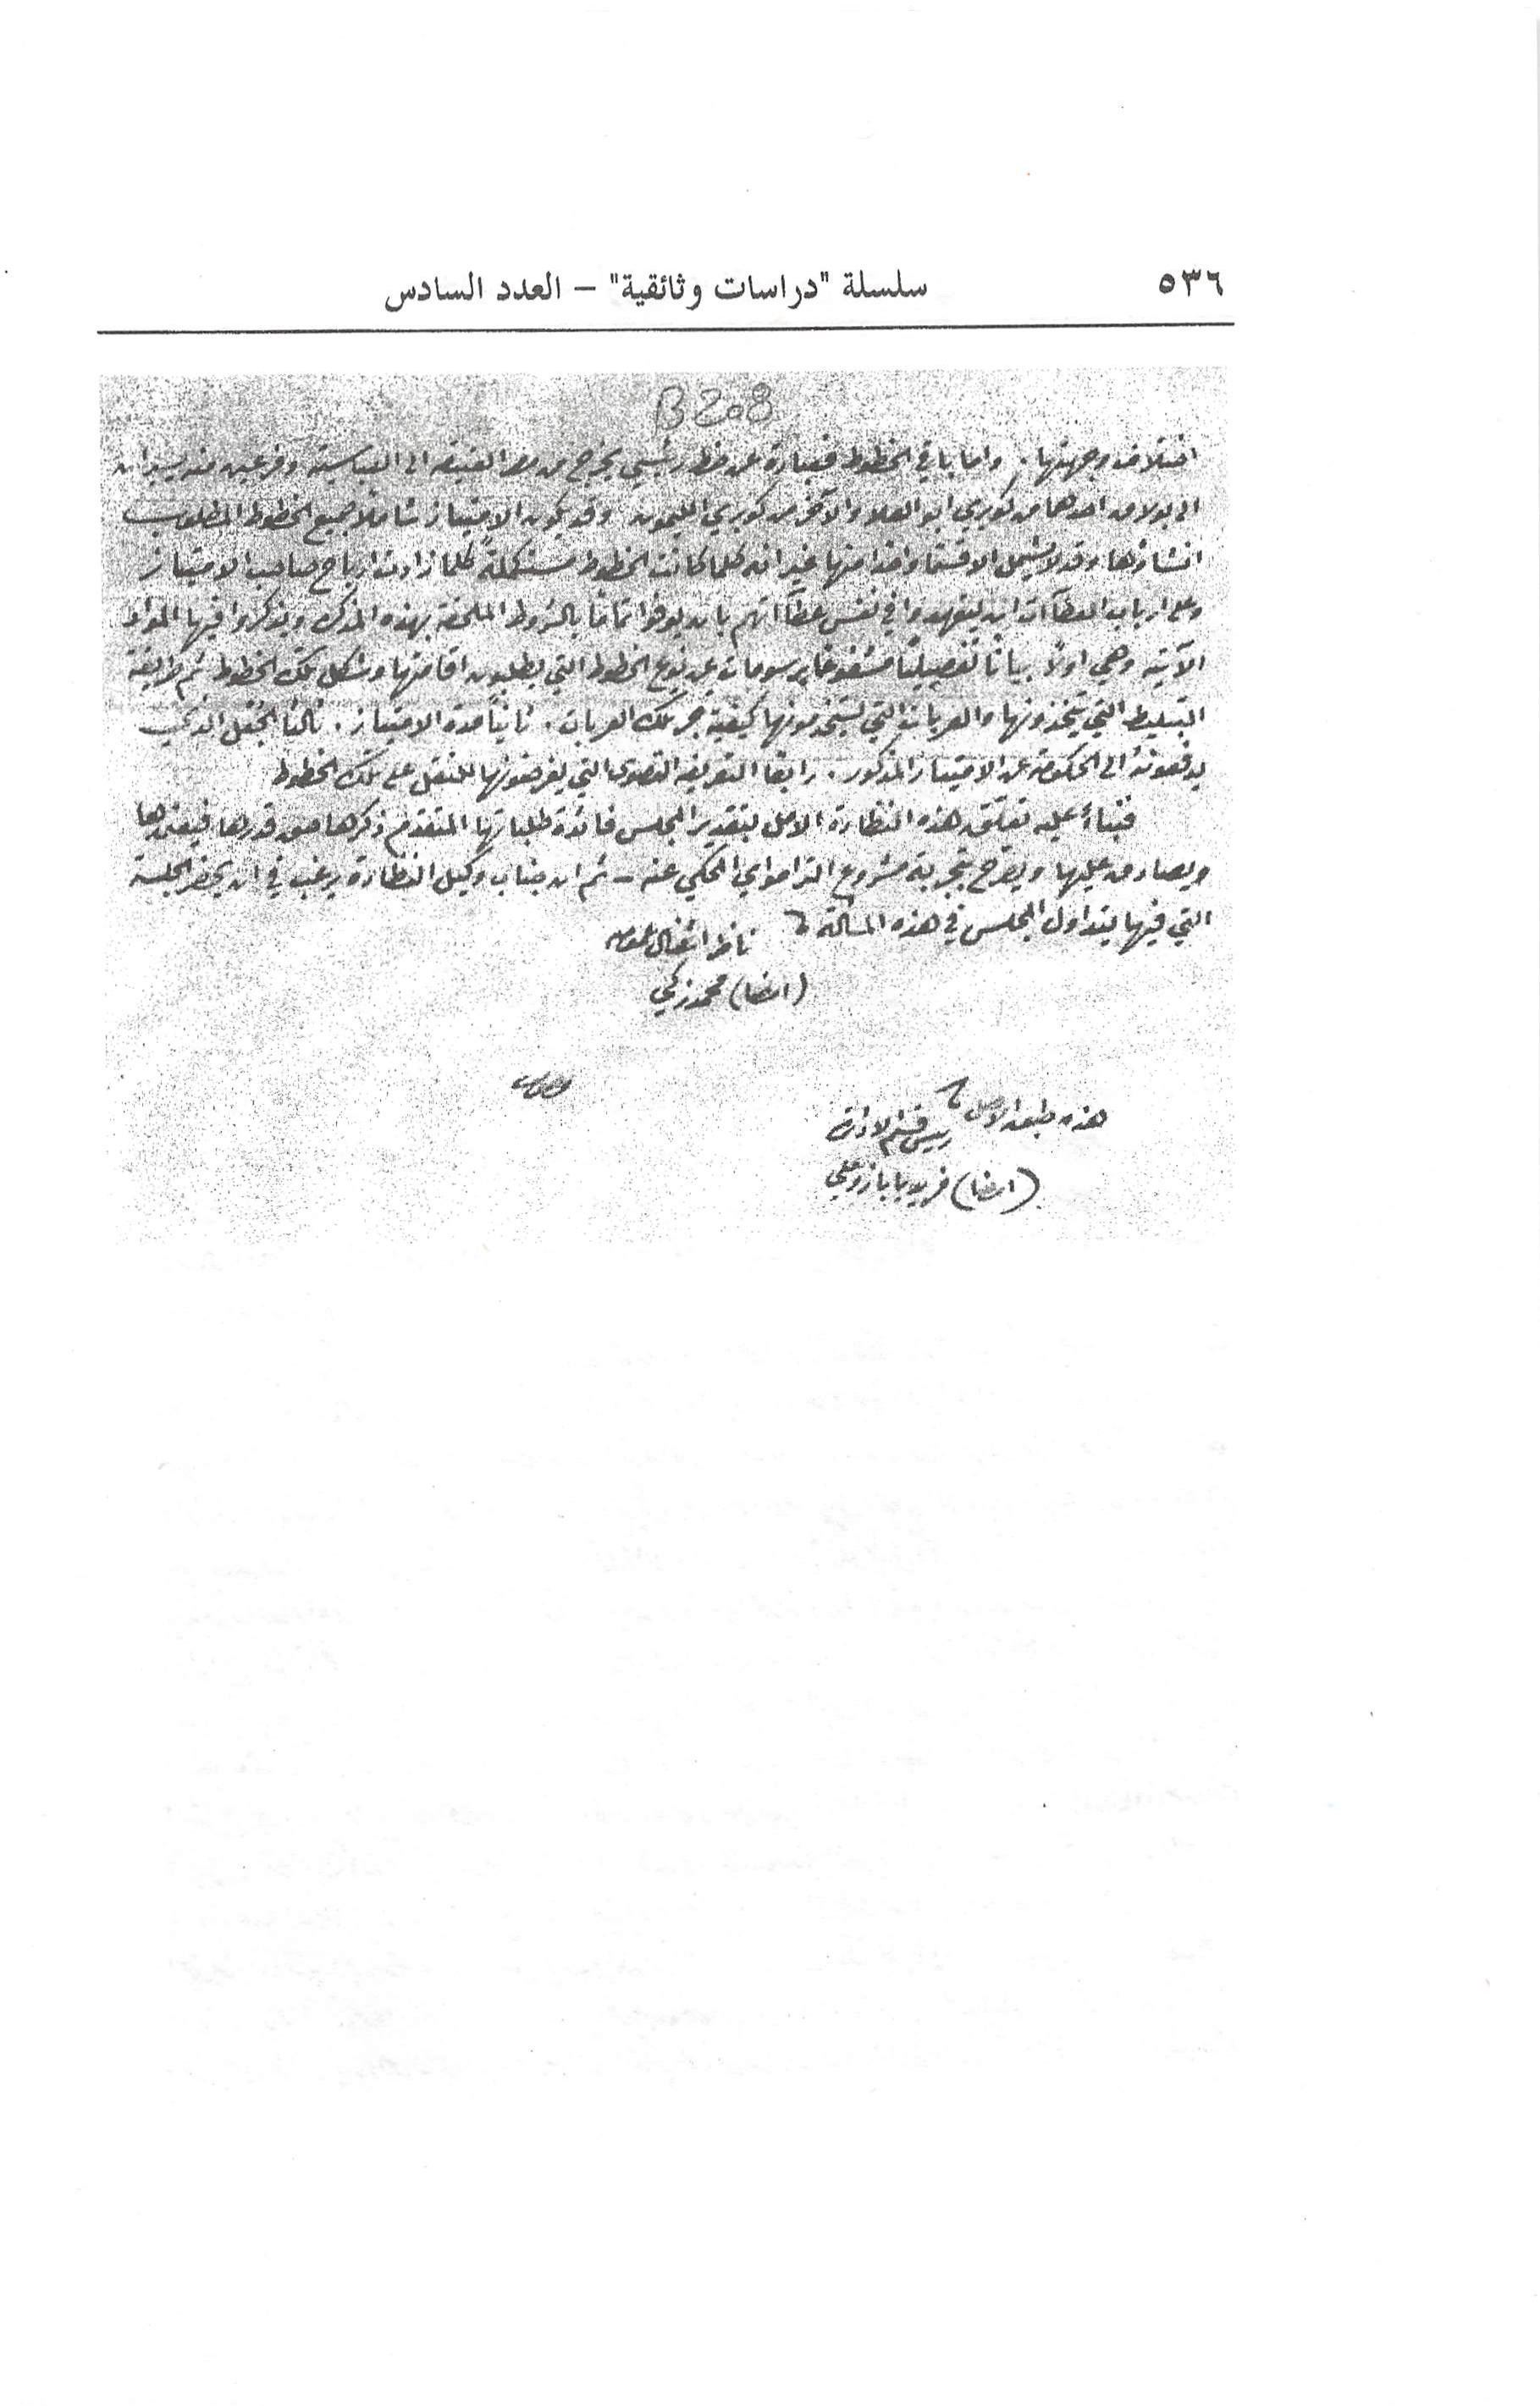 ٥٣٦
سلسلة "دراسات وثائقية" – العدد السادس
B 208
اختلاف وجهتها . واما باقي الخطوط فعبارة عن خط رئيسي يخرج من مصر العتيقه الى العباسية وفرعين منه يسيران
الى بولاق احدهما من كوبري ابو العلا والآخر من كوبري الليمون وقد يكون الامتياز شاملاً جميع الخطوط المطلوب
انشاؤها وقد لا يشمل الا قسما واحدا منها غير انه كلما كانت الخطوط مستكملة كلما زادت ارباح صاحب الامتياز
وعلى ارباب العطاآت ان يتعهدوا في نفس عطاآتهم بان يوفوا تماما بالشروط الملحقة بهذه المذكرة ويذكروا فيها المواد
الآتيه وهي اولاً بياناً تفصيلياً مشفوعا برسومات عن نوع الخطوط التي يطلبون اقامتها وشكل تلك الخطوط ثم طريقة
التبليط التي يتخذونها والعربات التي يستخدمونها كيفية جر تلك العربات . ثانياً مدة الامتياز . ثالثا الجعل الذي
يدفعونه الى الحكومة عن الامتياز المذكور . رابعا التعريفه القصوى التي يفرضونها للنقل على تلك الخطوط
فبناءً عليه تعلق هذه النظارة الامل بتقدير المجلس فائدة طلباتها المتقدم ذكرها حق قدرها فيعتبرها
ويصادق عليها ويصرح بتجربة مشروع التراموای المحكي عنه – ثم ان جناب وكيل النظارة يرغب في ان يحضر الجلسة
التي فيها يتداول المجلس في هذه المسألة
ناظر اشغال عموميه
(امضا) محمد زكي
هذه طبق الاصل
رييس قسم الادارة
(امضا) فريد